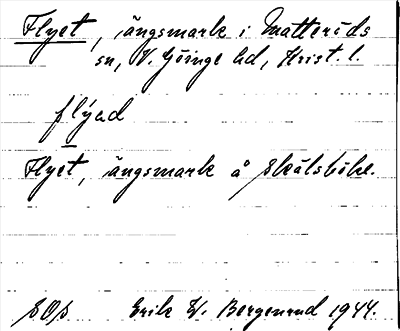 Flyet, ängsmark i Matteröds
sn, V. Göinge hd, Krist. l.
flýəd
Flyet, ängsmark å Skälsböke.
SOS Erik W. Bergenrud 1944.